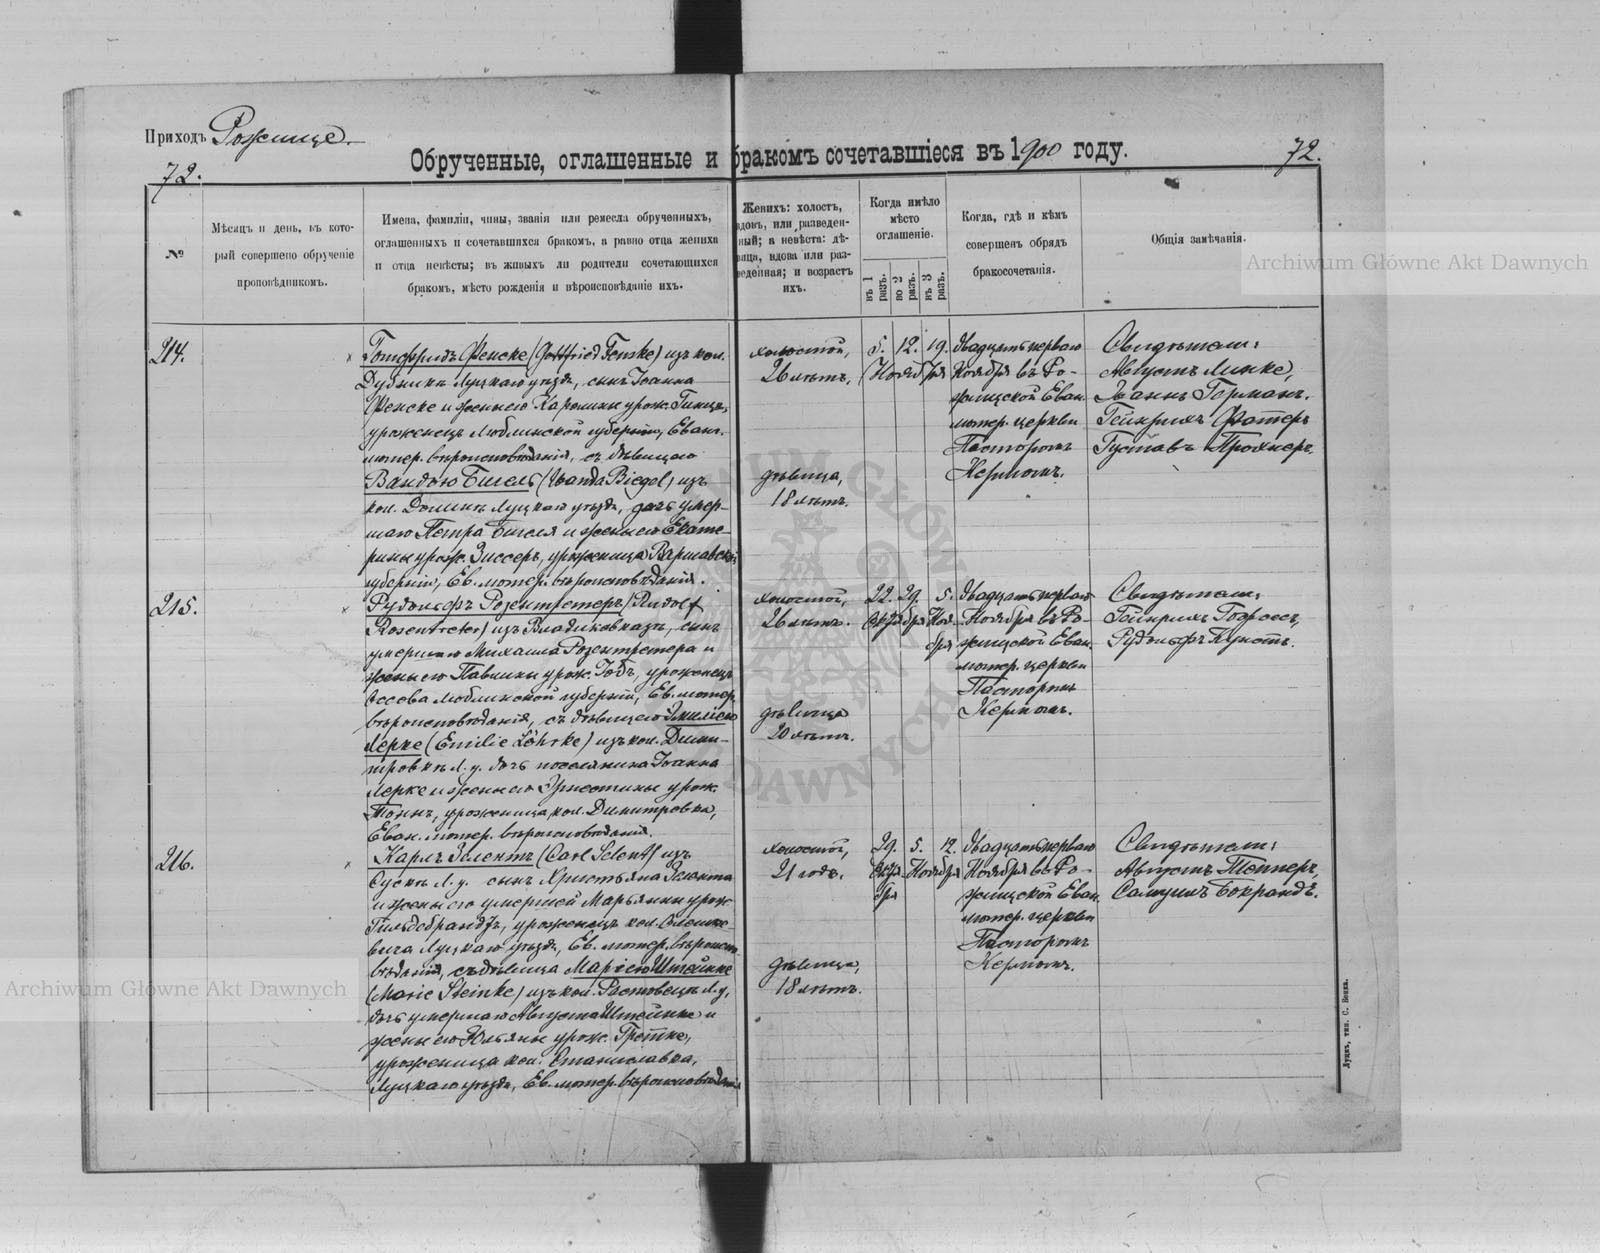 Приходъ Рожище.
72.
Обрученные, оглашенные и бракомъ сочетавшіеся въ 1900 году.
72.
№
Мѣсяцъ и день, въ кото-
рый совершено обрученіе
проповѣдникомъ.
Имена, фамиліи, чины, званія или ремесла обрученныхъ,
оглашенныхъ и сочетавшихся бракомъ, а равно отца жениха
и отца невѣсты; въ живыхъ ли родители сочетающихся
бракомъ, мѣсто рожденія и вѣроисповѣданіе ихъ.
Женихъ: холостъ,
вдовъ, или разведен-
ный; а невѣста: дѣ-
вица, вдова или раз-
веденная; и возрастъ
ихъ.
Когда имѣло
мѣсто
оглашеніе.
въ 1 разъ.
во 2 разъ.
въ 3 разъ.
Когда, гдѣ и кѣмъ
совершенъ обрядъ
бракосочетанія.
Общія замѣчанія.
Archiwum Główne Akt Dawnych
214.
Готфридъ Фенске (Gottfried Fenske) изъ кол.
Дубникъ Луцкаго уѣзда, сынъ Іоанна
Фенске и жены его Каролины урож. Гинцъ,
уроженецъ Люблинской губерніи, Еванг.
лютер. вѣроисповѣданія, съ дѣвицею
Вандою Бигель (Wanda Biegel) изъ
кол. Луцкаго уѣзда, дочь умер-
шаго Петра Бигеля и жены его Екате-
рины урож. Зиссеръ, уроженица Варшавской
губерніи, Ев. лютер. вѣроисповѣданія.
холостой,
26 лѣтъ.
дѣвица,
18 лѣтъ.
5. 12. 19.
Ноября
Двадцать перваго
Ноября въ Ро-
жищской Еван.
лютер. церкви
Пасторомъ
Кермомъ.
Свидѣтели:
Августъ Линке,
Іоаннъ Горманъ.
Гейнрихъ Фаттеръ
Густавъ Прохнеръ.
215.
Рудольфъ Розентретеръ (Rudolf
Rosentreter) изъ Владикавказъ, сынъ
умершаго Михаила Розентретера и
жены его Павлины урож. Годъ, уроженецъ
Люблинской губерніи, Ев. лютер.
вѣроисповѣданія, съ дѣвицею Эмиліею
Лерке (Emilie Löhrke) изъ кол. Дими-
тровкъ Л. у. дочь поселянина Іоанна
Лерке и жены его Христины урож.
Тоннъ, уроженица кол. Димитровка,
Еван. лютер. вѣроисповѣданія.
холостой,
26 лѣтъ.
дѣвица
20 лѣтъ.
22. 29. 5.
Октября Ноя-
бря
Двадцать перваго
Ноября въ Ро-
жищской Еван.
лютер. церкви
Пасторомъ
Кермомъ.
Свидѣтели:
Рудольфъ
216.
Карлъ Зелентъ (Carl Selent) изъ
Л. у. сынъ Христьяна Зелента
и жены его умершей Марьянны урож.
Гильдебрандъ, уроженецъ кол.
Луцкаго уѣзда, Ев. лютер. вѣроиспо-
вѣданія, съ дѣвица Маріею Штейнке
(Marie Steinke) изъ кол. Растовецъ Л. у.
дочь умершаго Августа Штейнке и
жены его Юльяны урож. Гретке,
уроженица кол. Станиславка,
Луцкаго уѣзда, Ев. лютер. вѣроисповѣданія
холостой,
21 годъ.
дѣвица,
18 лѣтъ.
29. 5. 12.
Октя- Ноября
бря
Двадцать перваго
Ноября въ Ро-
жищской Еван.
лютер. церкви
Пасторомъ
Кермомъ.
Свидѣтели:
Августъ Теппер,
Самуилъ Бокрандъ.
Archiwum Główne Akt Dawnych
ARCHIWUM GŁÓWNE AKT DAWNYCH
Луцкъ, тип. С. Бонка.